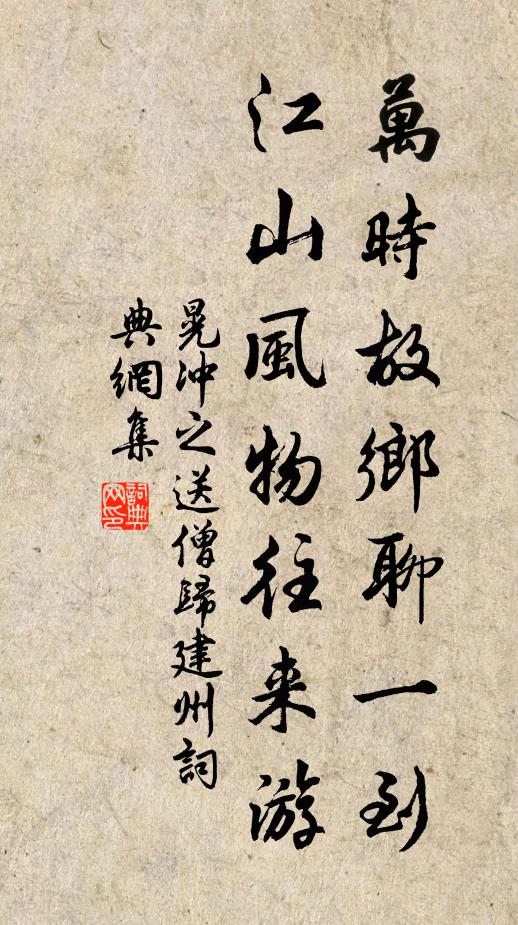 萬時故鄉聊一到
江山風物往来游
晁沖之送僧歸建州詞
典網集
詞典
网印